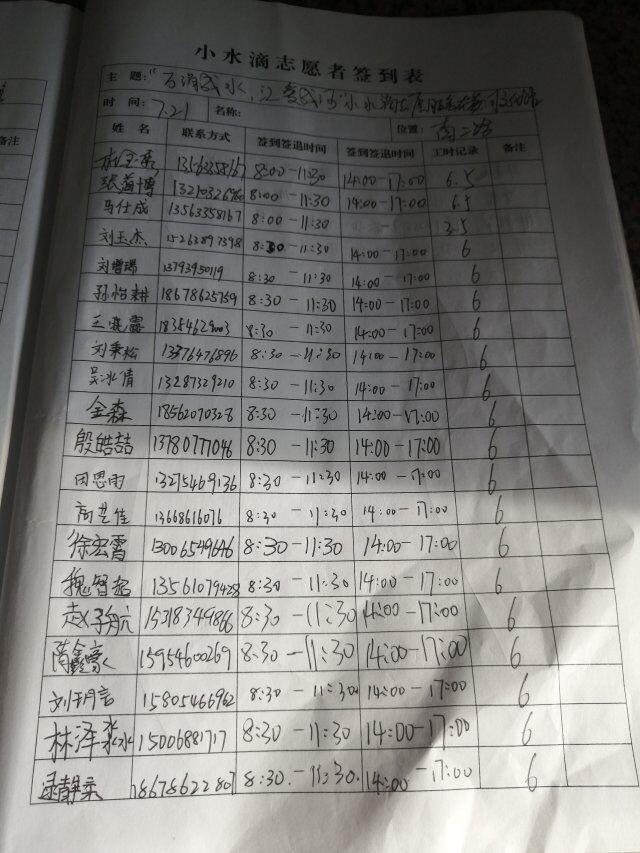 小水滴志愿者签到表
主 题:
时 间: 7.21 名称:
位置: 南二路
姓 名 联系方式 签到签退时间 签到签退时间 工时记录 备注
备注
13563358167 8:00-11:30 14:00-17:00 6.5
张道博 8:00-11:30 14:00-17:00 6.5
马仕成 13563358167 8:00-11:30 3.5
刘玉杰 15263897398 8:30-11:30 14:00-17:00 6
刘增瑞 13793950119 8:30-11:30 14:00-17:00 6
孙怡耕 18678625759 8:30-11:30 14:00-17:00 6
18354629003 8:30-11:30 14:00-17:00 6
刘秉松 13376476896 8:30-11:30 14:00-17:00 6
吴冰倩 13287329210 8:30-11:30 14:00-17:00 6
金森 18562070328 8:30-11:30 14:00-17:00 6
殷皓喆 13780777046 8:30-11:30 14:00-17:00 6
田思雨 13275469136 8:30-11:30 14:00-17:00 6
高艺佳 13668616076 8:30-11:30 14:00-17:00 6
徐宏霄 13006549646 8:30-11:30 14:00-17:00 6
魏智超 13561079428 8:30-11:30 14:00-17:00 6
赵子航 15318349866 8:30-11:30 14:00-17:00 6
隋鑫豪 15954600269 8:30-11:30 14:00-17:00 6
刘玥言 15805466962 8:30-11:30 14:00-17:00 6
林泽淼 15006881717 8:30-11:30 14:00-17:00 6
逯静柔 18678622807 8:30-11:30. 14:00-17:00 6